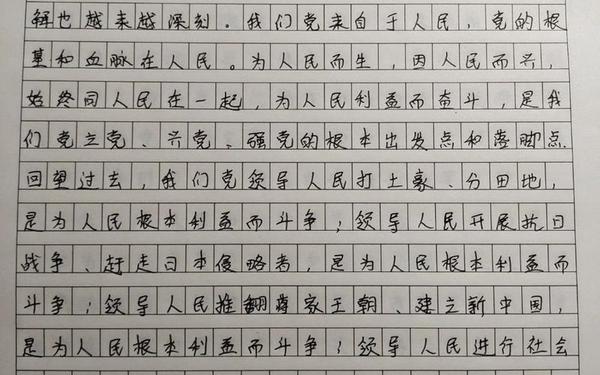 解也越来越深刻。我们党来自于人民，党的根
基和血脉在人民。为人民而生，因人民而兴，
始终同人民在一起，为人民利益而奋斗，是我
们党立党、兴党、强党的根本出发点和落脚点
回望过去，我们党领导人民打土豪、分田地，
是为人民根本利益而斗争；领导人民开展抗日
战争、赶走日本侵略者，是为人民根本利益而
斗争；领导人民推翻蒋家王朝、建立新中国，
是为人民根本利益而斗争；领导人民进行社会